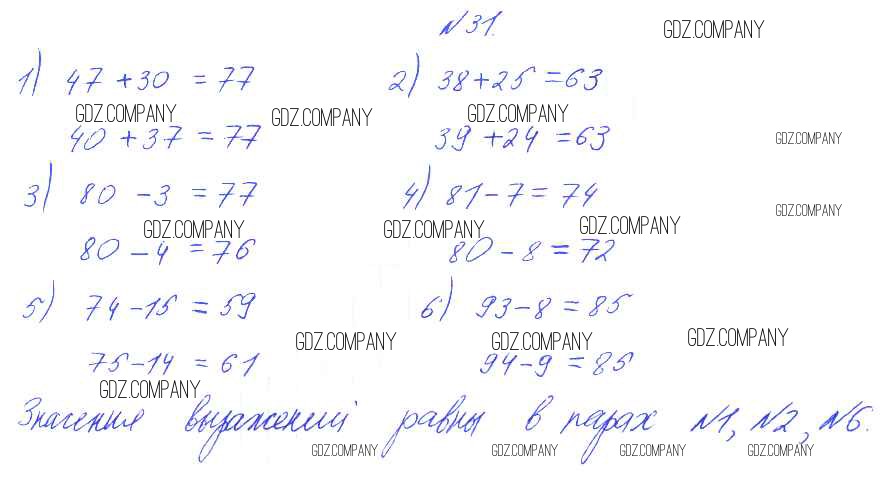 N31. GDZ.COMPANY
1) 47 + 30 = 77 2) 38 + 25 = 63
GDZ.COMPANY GDZ.COMPANY GDZ.COMPANY
40 + 37 = 77 39 + 24 = 63 GDZ.COMPANY
3) 80 - 3 = 77 4) 81 - 7 = 74
GDZ.COMPANY
GDZ.COMPANY GDZ.COMPANY GDZ.COMPANY
80 - 4 = 76 80 - 8 = 72
5) 74 - 15 = 59 6) 93 - 8 = 85
GDZ.COMPANY GDZ.COMPANY GDZ.COMPANY
75 - 14 = 61 94 - 9 = 85
GDZ.COMPANY
Значения выражений равны в парах N1, N2, N6.
GDZ.COMPANY GDZ.COMPANY GDZ.COMPANY GDZ.COMPANY